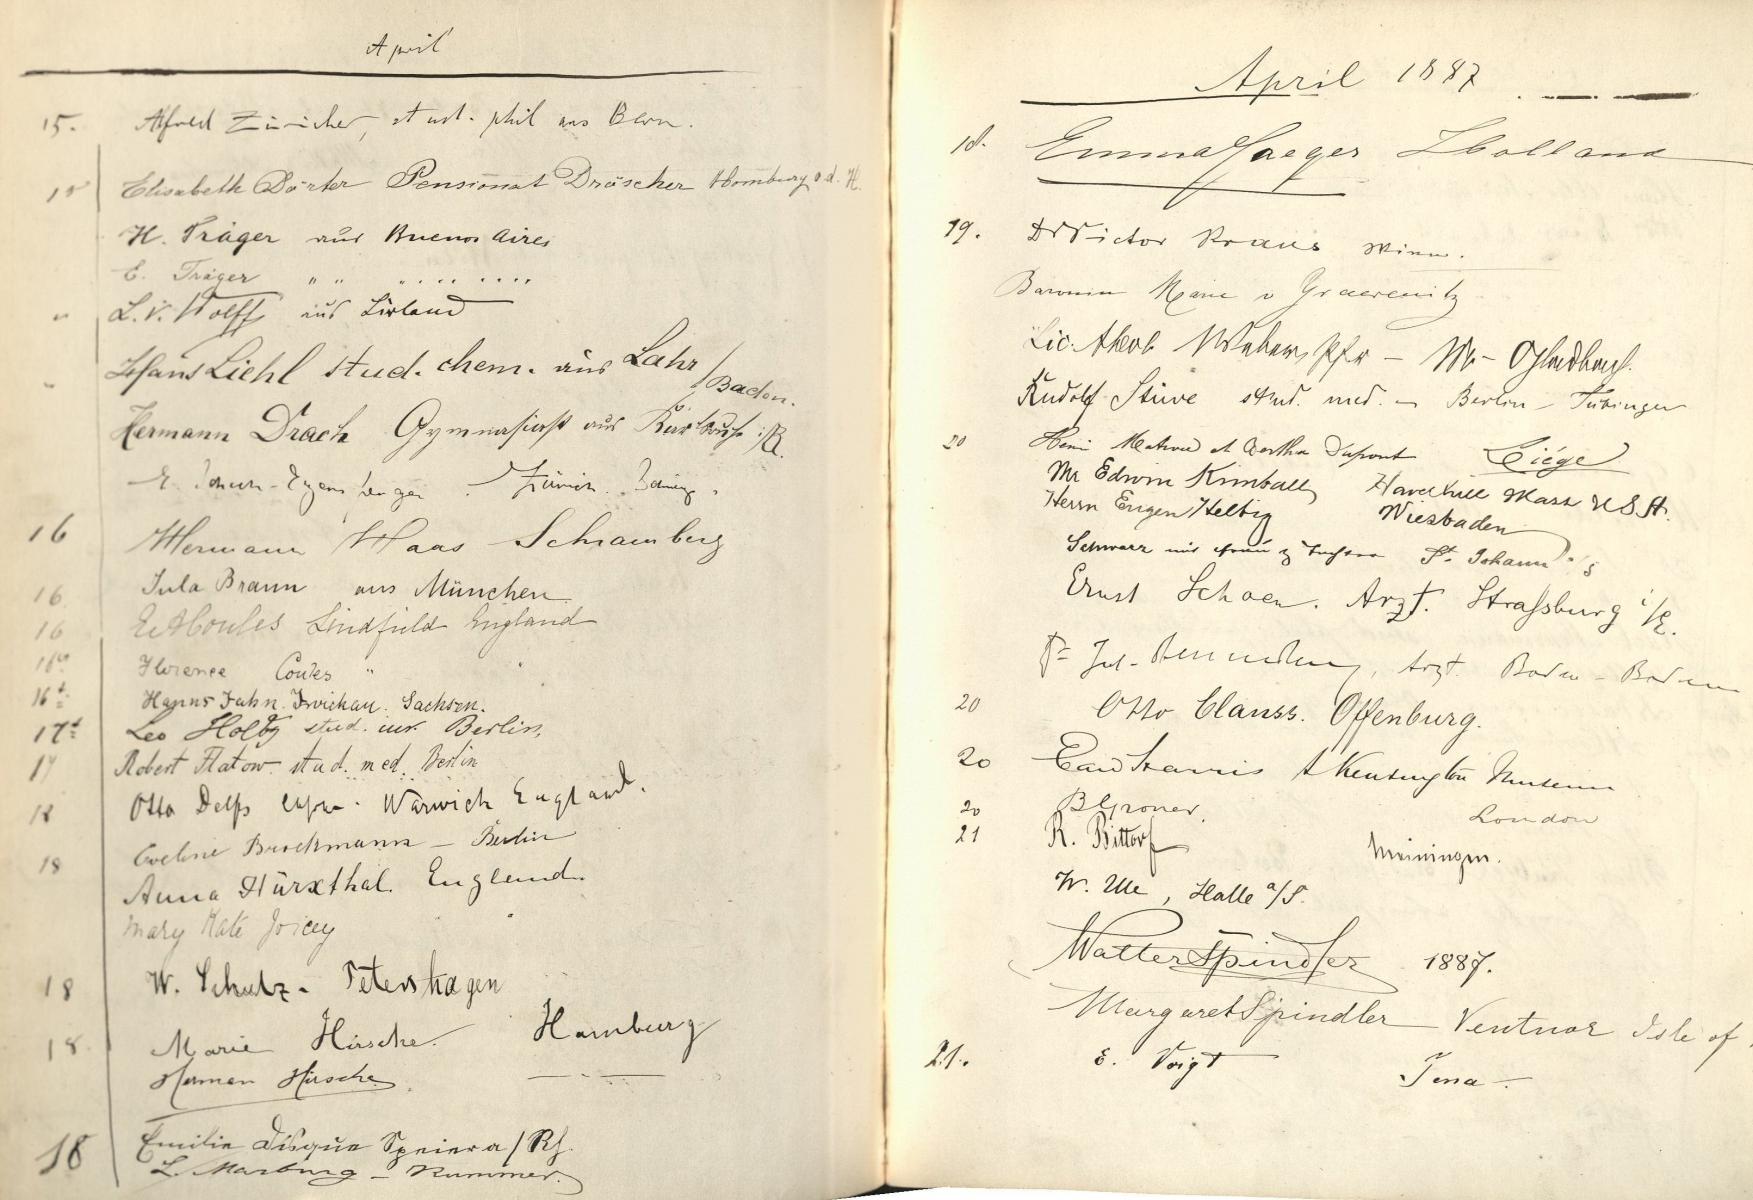 April
15. Alfred Züricher, stud. phil aus Bern.
15 Elisabeth Dörter Pensionat Dröscher Homburg v. d. H.
H. Träger aus Buenos Aires
E. Träger " " " "
" L. v. Wolff aus Livland
" Hans Liehl stud. chem. aus Lahr / Baden.
Hermann Drach Gymnasiast aus
Zürich
16 Hermann Haas Schramberg
16 Jula Braun aus München
16 Lindfield England
16 Florence Coules " "
16t Hanns Jahn. Zwickau. Sachsen.
17t Leo Holtz stud. iur. Berlin,
17 Robert Flatow. stud. med. Berlin
18 Otto Delfs Warwick England.
18 Eveline Brockmann – Berlin
Anna Hürxthal. England.
Mary Kate Joicey "
18 W. Schulz - Petershagen
18. Marie Hirsche. Hamburg
Herman Hirsche — —
18 Emilie Disqué Speier a/Rh.
L. Marburg – Kummer.
April 1887
18. Emma Jaeger Holland
19. Dr Victor Kraus Wien.
Baronin Marie v Graevenitz
Lic. Weber, Pfr – M – Gladbach.
Rudolf Stüve stud. med. – Berlin – Tübingen
20 et Bertha Dupont Liége
Mr Edwin Kimball Haverhill Mass U S A.
Herrn Eugen Helbig Wiesbaden
Schwarz mit Frau & Tochter St. Johann a/S
Ernst Schoen. Arzt. Straßburg i/E.
Dr Jul. Arzt. Baden - Baden
20 Otto Clauss. Offenburg.
20 Harris Kensington Museum
20 B Groner. London
21 R. Bittorf Meiningen.
W. Ule, Halle a/S.
Walter Spindler 1887.
Margaret Spindler Ventnor Isle of
21. E. Voigt Jena.